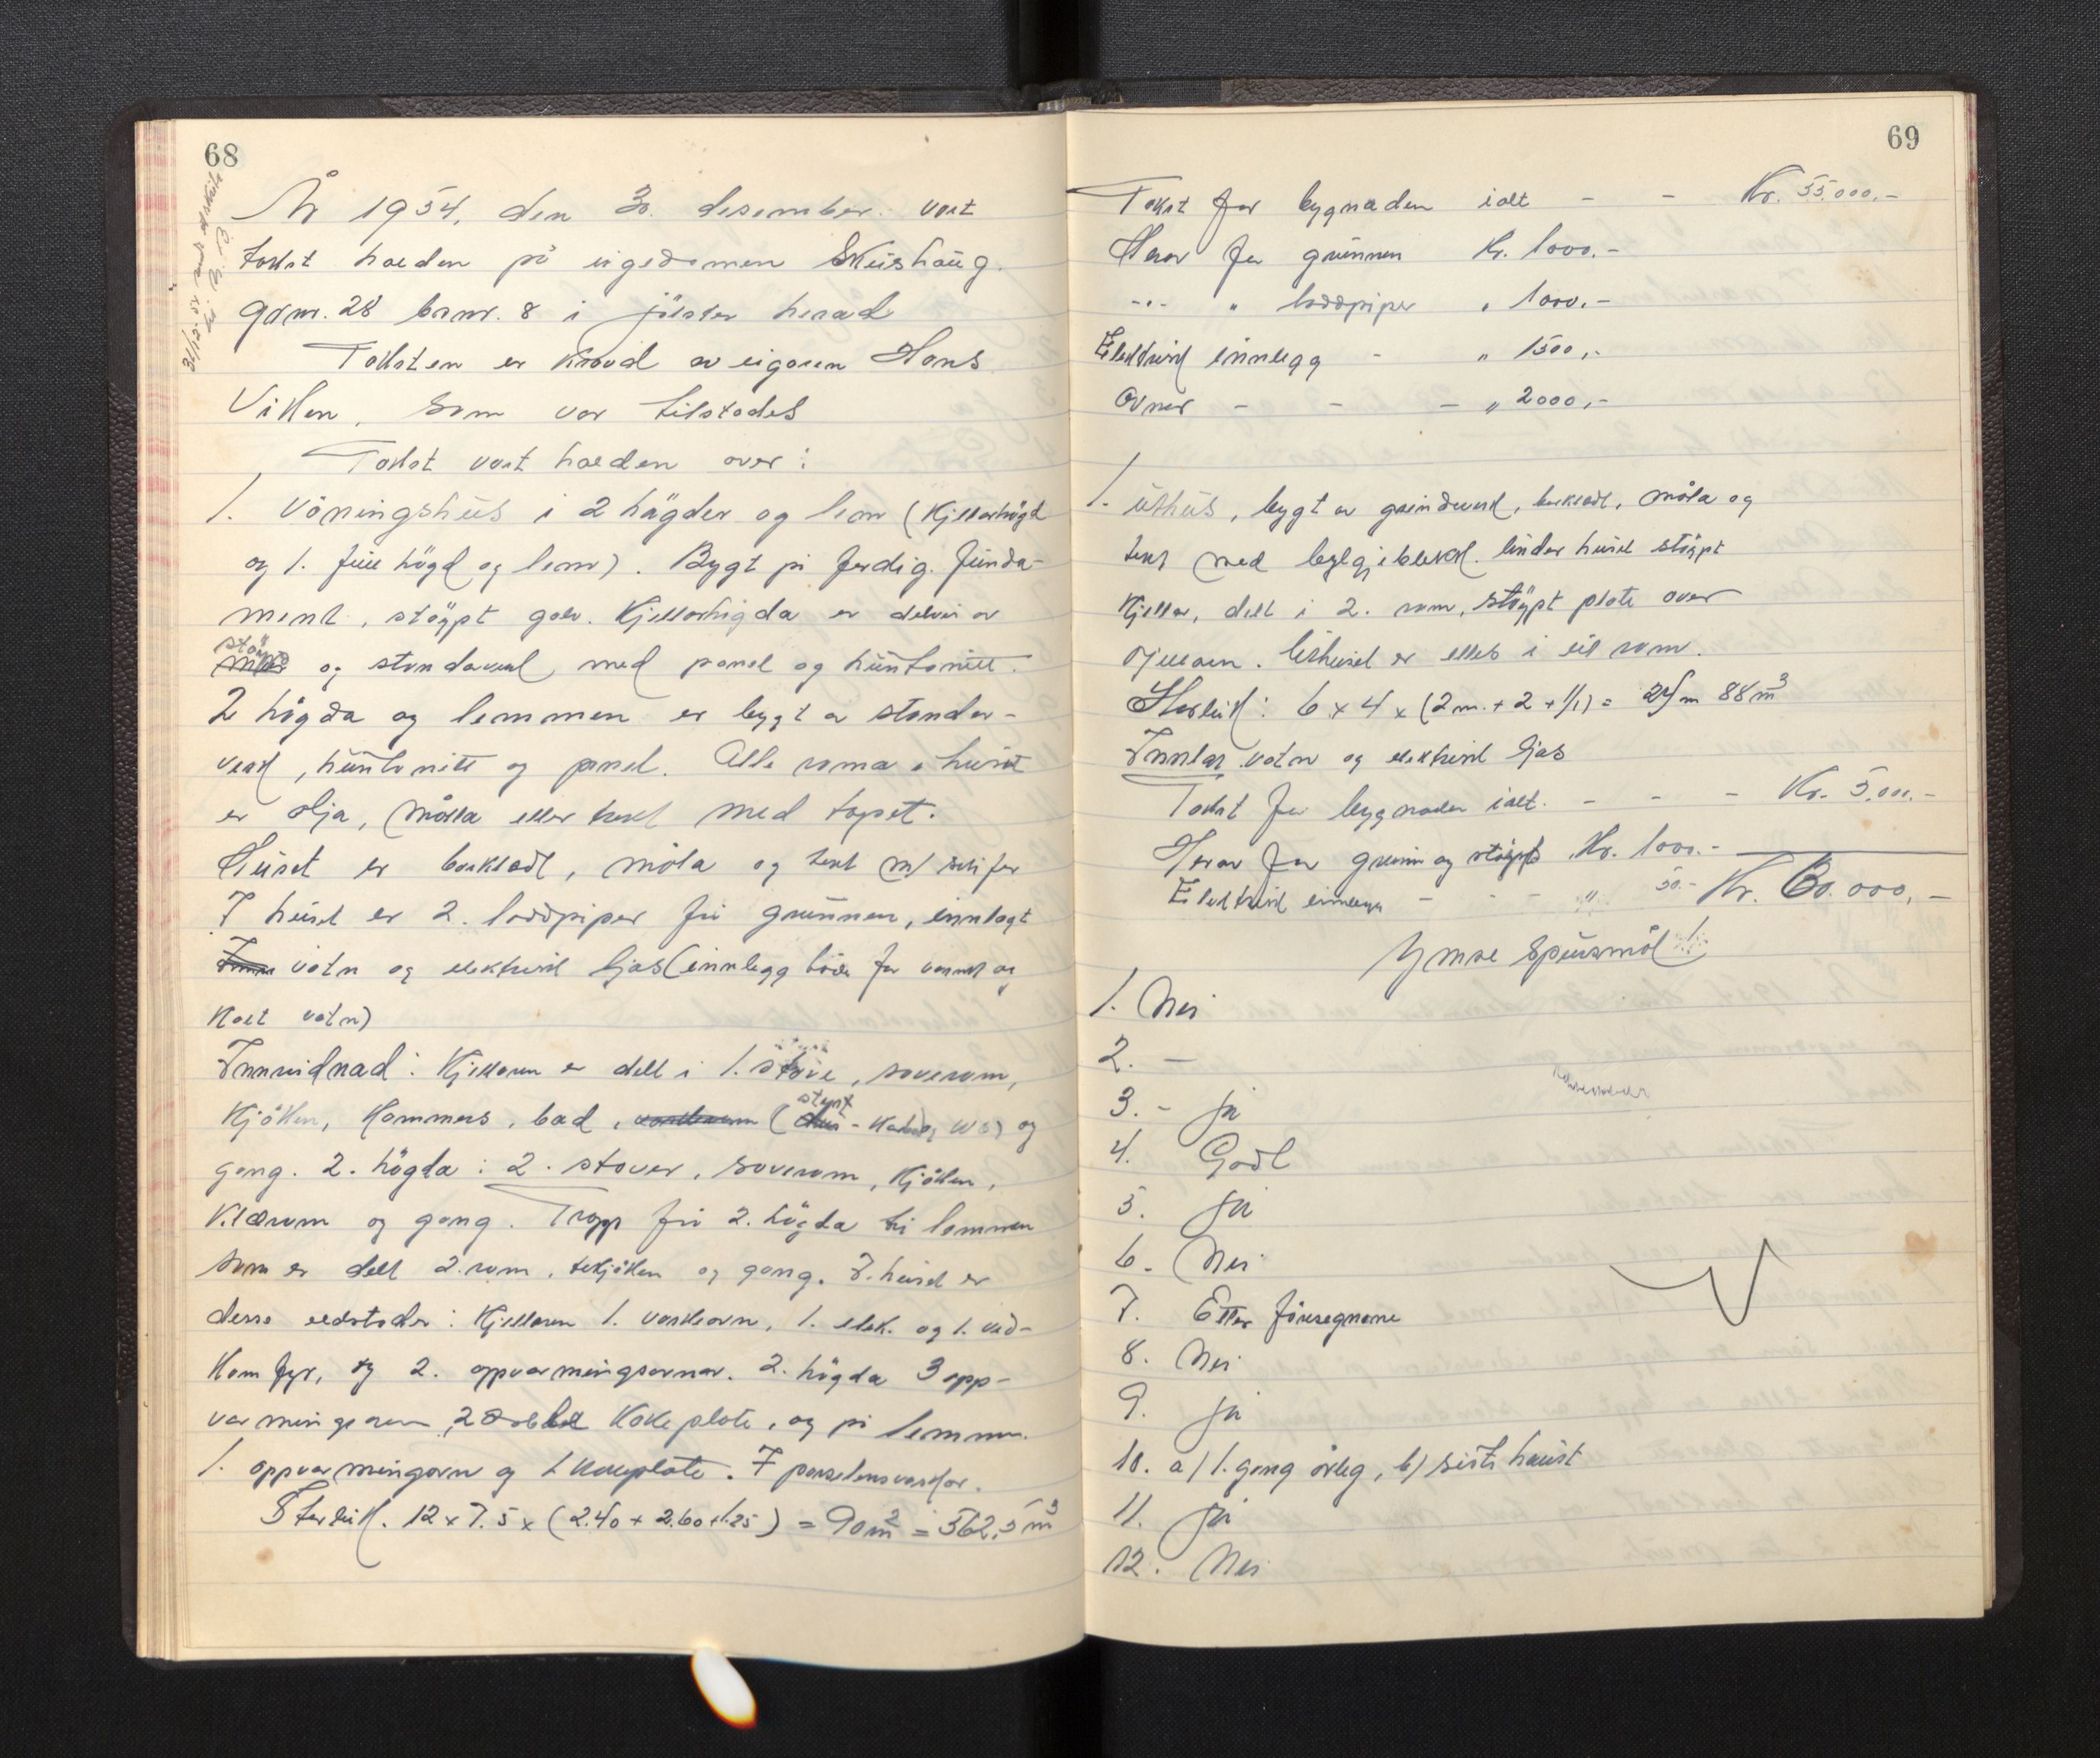 68
År 1954, den 30. desember vart
takst halden på eigedomen Skeishaug.
grnr. 28 brnr. 8 i Jölster herad
Taksten er kravd av eigaren Hans
Viken, som var tilstades
Takst vart halden over:
1. Våningshus i 2 högder og lem (Kjellarhögd
og 1. full högd og lem). Bygt på ferdig funda-
ment, stöypt golv. Kjellarhögda er delvis av
stöyp og standaverk med panel og huntonitt.
2 högda og lemmen er bygt av stander-
verk, huntonitt og panel. Alle roma i huset
er olja, måla eller tekt med tapet.
Huset er borkledt, måla og tekt m/ skifer
I huset er 2. loddpiper frå grunnen, innlagt
vatn og elektrisk ljos (innlegg både for varmt og
kalt vatn)
Innreidnad: Kjellaren er delt i 1. stove, soverom,
Kjöken, Kammers, bad, (
gang. 2. högda: 2. stover, soverom, Kjöken,
Klærom og gang. Trapp frå 2. högda til lemmen
som er delt 2. rom, tekjöken og gang. I huset er
desse eldstader: Kjellaren 1. vaskeovn, 1. elek. og 1. ved-
Komfyr, og 2. oppvarmingsovnar. 2. högda 3 opp-
varmingsovn, 2 dobbel Kokeplate, og på lemmen
1. oppvarmingovn og 1 Kokeplate. 7 porselensvaskar.
Storleik. 12 x 7.5 x (2.40 + 2.60 + 1.25) = 90 m2 = 562,5 m3
69
Takst for bygnaden ialt - - Kr. 55.000,-
Herav for grunnen Kr. 1000.-
-"- " loddpiper " 1000.-
Elektrisk innlegg - " 1500,-
Ovner - - - " 2000,-
1. Uthus, bygt av grindverk, borkledt, måla og
tekt med bylgjeblekk. Under huset stöypt
Kjellar, delt i 2. rom, stöypt plate over
Kjellaren. Uthuset er elles i eit rom.
Storleik: 6 x 4 x (2 m. + 2 + 1/1) = 24 m 88 m3
Innlagt vatn og elektrisk ljos
Takst for bygnaden ialt. - - - Kr. 5.000.-
Herav for grunn og stöypt Kr. 1000.-
Elektrisk innlegg - - - " 50.- Kr. 60.000,-
Ymse Spursmål!
1. Nei
2. -
3. - ja
4. Godt
5. ja
6. Nei
7. Etter föresegnene
8. Nei
9. ja
10. a) 1. gang årleg, b) siste haust
11. ja
12. Nei